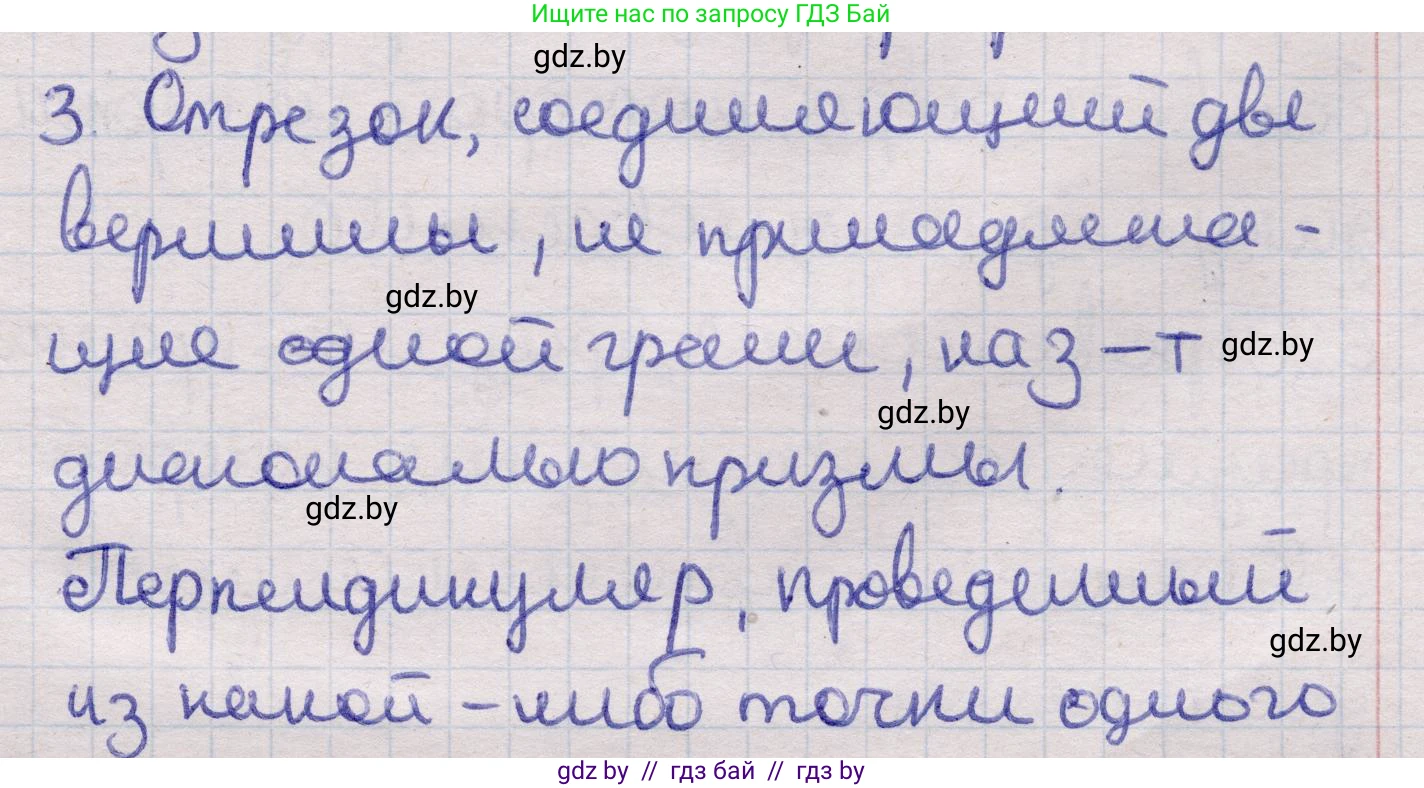 Ищите нас по запросу ГДЗ Бай
gdz.by
3. Отрезок, соединяющий две
вершины, не принадлежа-
gdz.by
щие одной грани, наз-т
gdz.by
gdz.by
диагональю призмы.
gdz.by
Перпендикуляр, проведенный
gdz.by
из какой-либо точки одного
gdz by // гдз бай // гдз by